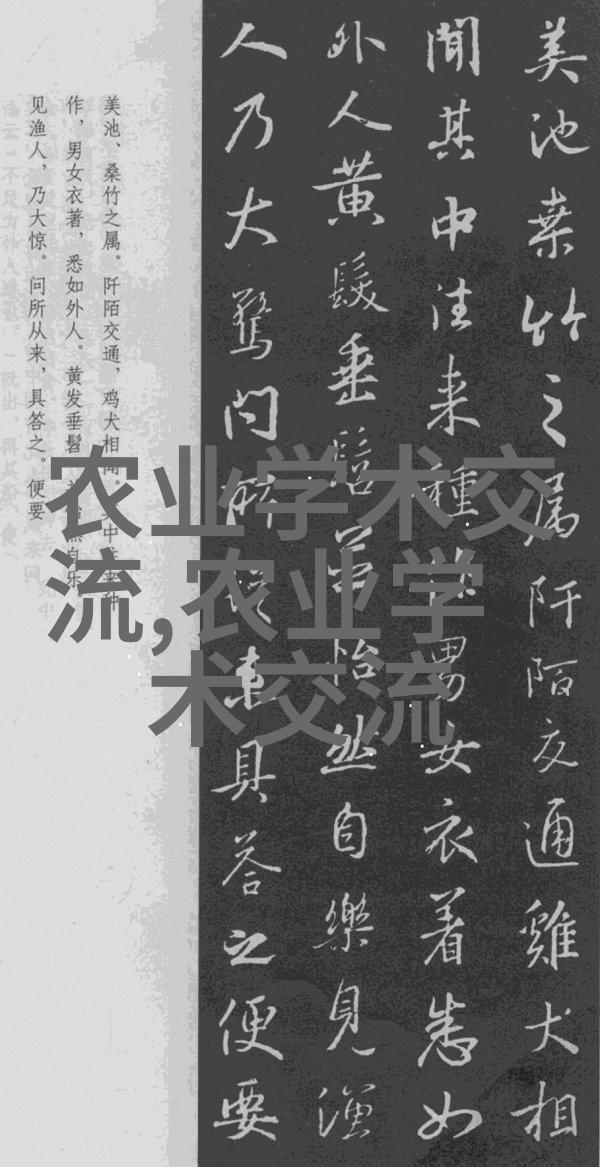 美池桒竹之属阡陌交通雞犬相
聞其中往来種作男女衣着悉如
外人黄髮垂髫並怡然自樂見漁
人乃大驚问所從来具答之便要
美池、桑竹之属。阡陌交通，鸡犬相闻。其中往来种
作，男女衣著，悉如外人。黄发垂髫，并怡然自乐。
见渔人，乃大惊。问所从来，具答之。便要
农业学术交
流,农业学
术交流